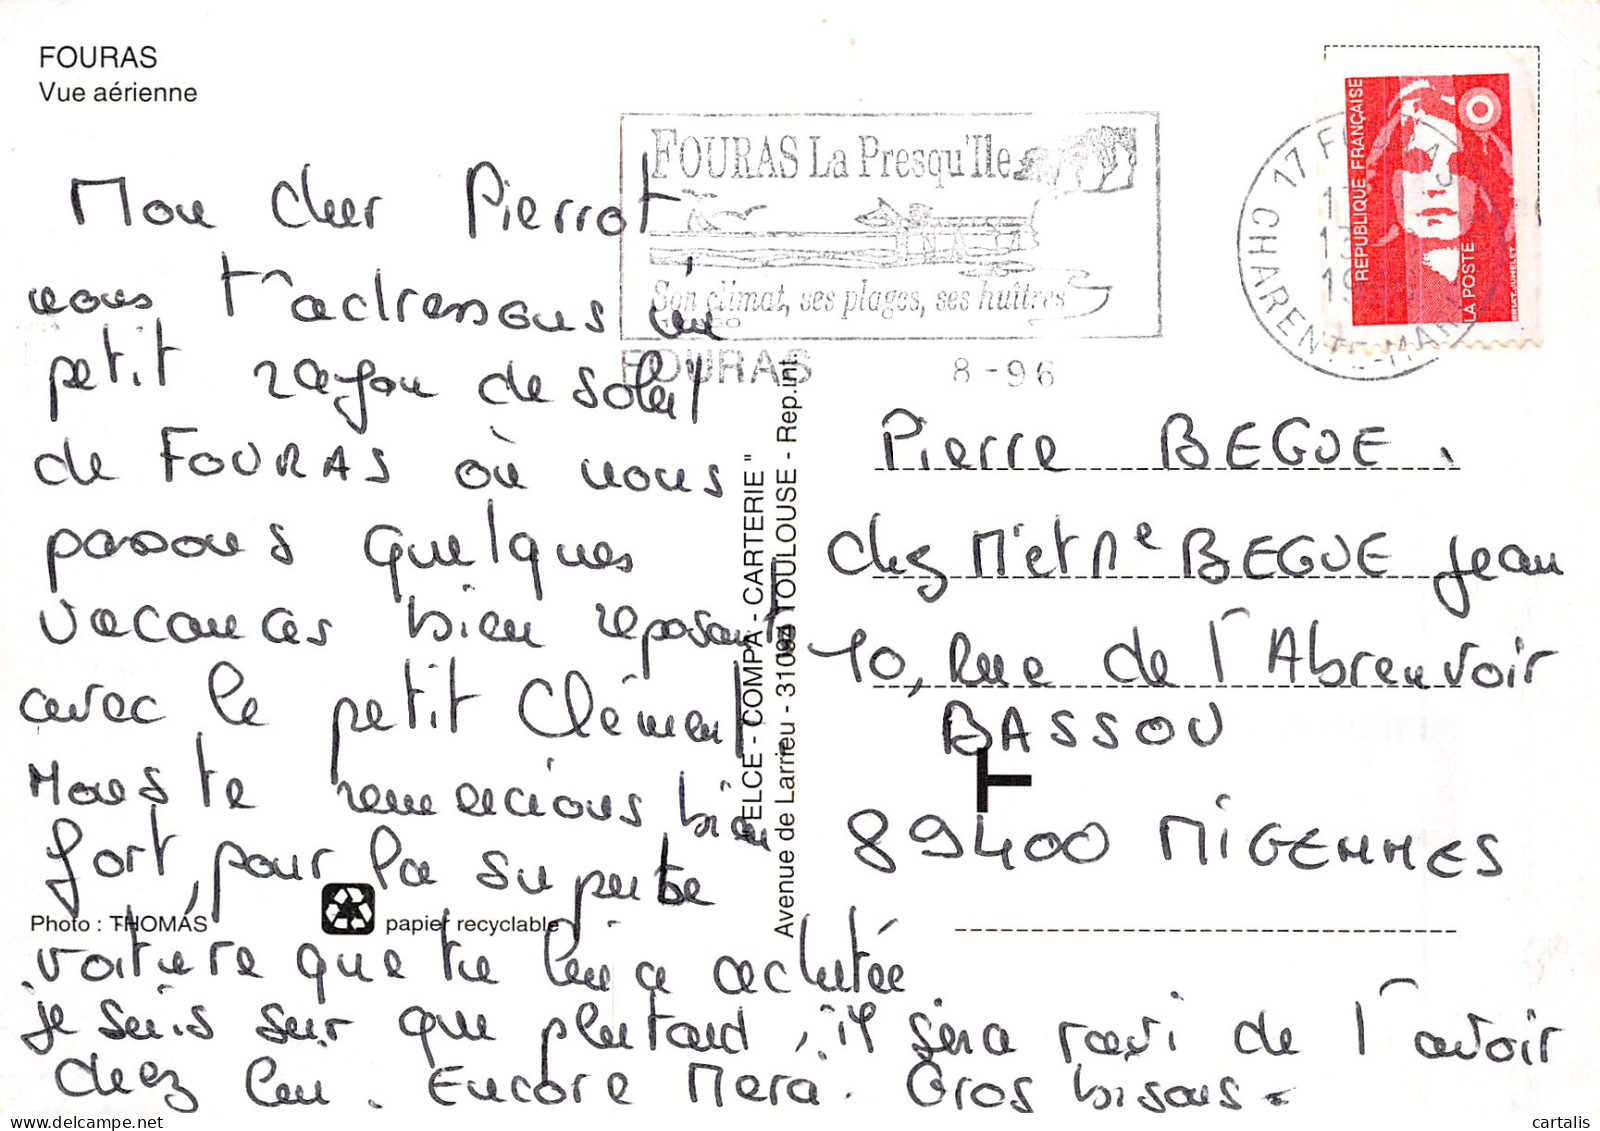 FOURAS
Vue aérienne
FOURAS La Presqu'Ile
Son climat, ses plages, ses huîtres
FOURAS
8-96
17 F
CHARENTE-MAR
REPUBLIQUE FRANÇAISE
LA POSTE
Mon cher Pierrot
nous t'adressons un
petit rayon de soleil
de FOURAS où nous
passons quelques
vacances bien reposant
avec le petit Clément
Nous te remercions bien
fort, pour la superbe
voiture que tu lui a achetée
je suis sur que plutard, il sera ravi de l'avoir
chez lui. Encore Merci. Gros bisous.
Pierre BEGUE.
chez Mr et Me BEGUE Jean
10, Rue de l'Abreuvoir
BASSOU
T
89400 MIGENNES
"ELCE - COMPA - CARTERIE"
Avenue de Larrieu - 31094 TOULOUSE - Rep.int.
Photo : THOMAS
papier recyclable
cartalis